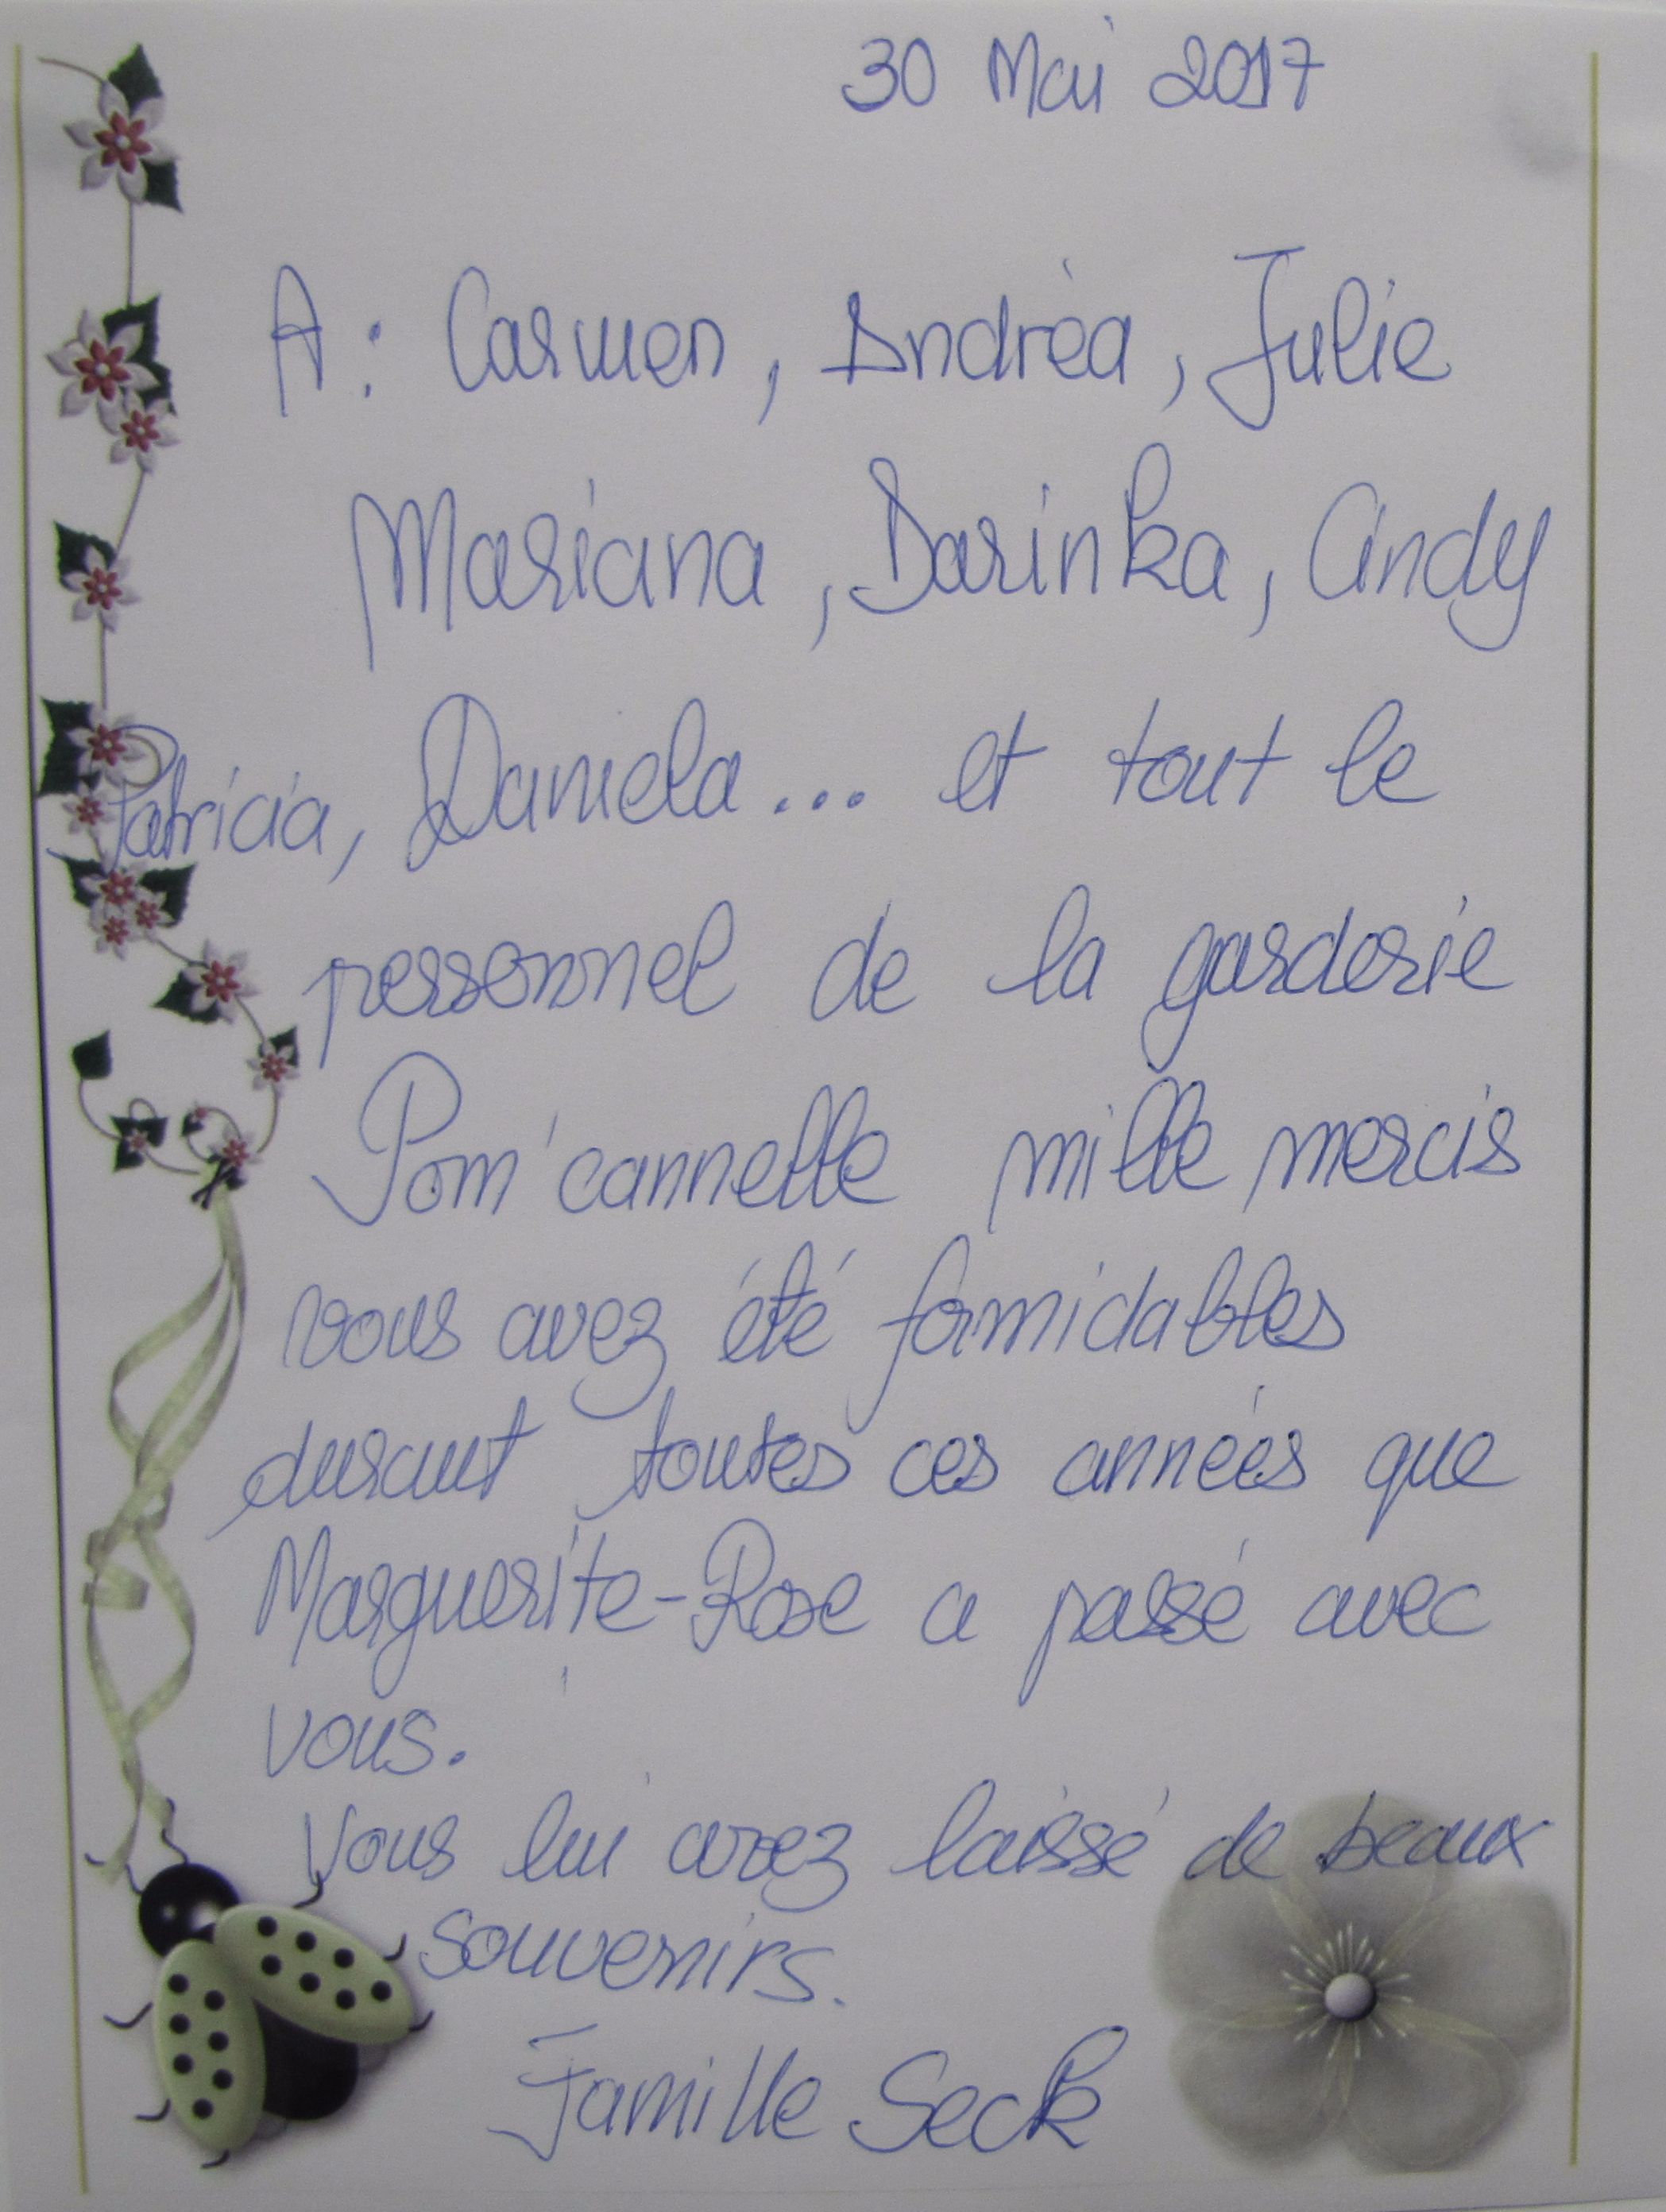 30 Mai 2017
A : Carmen, Andréa, Julie
Mariana, Darinka, Cindy
Patricia, Daniela... et tout le
personnel de la garderie
Pom'cannelle mille mercis
vous avez été formidables
durant toutes ces années que
Marguerite-Rose a passé avec
vous.
Vous lui avez laissé de beaux
souvenirs.
Famille Seck